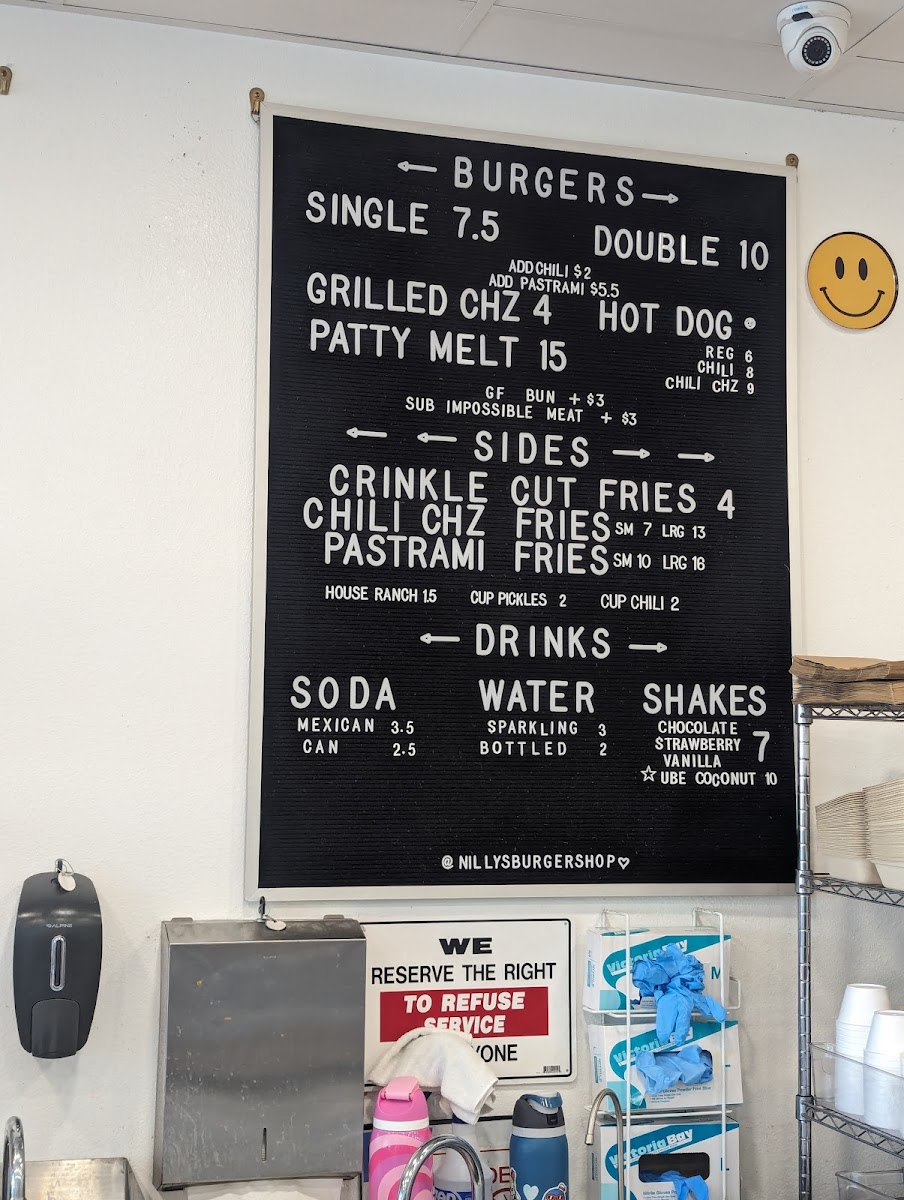 ← BURGERS →
SINGLE 7.5
DOUBLE 10
ADD CHILI $2
ADD PASTRAMI $5.5
GRILLED CHZ 4
HOT DOG
PATTY MELT 15
REG 6
CHILI 8
CHILI CHZ 9
GF BUN + $3
SUB IMPOSSIBLE MEAT + $3
← ← SIDES → →
CRINKLE CUT FRIES 4
CHILI CHZ FRIES SM 7 LRG 13
PASTRAMI FRIES SM 10 LRG 16
HOUSE RANCH 1.5 CUP PICKLES 2 CUP CHILI 2
← DRINKS →
SODA
MEXICAN 3.5
CAN 2.5
WATER
SPARKLING 3
BOTTLED 2
SHAKES
CHOCOLATE
STRAWBERRY 7
VANILLA
☆ UBE COCONUT 10
@NILLYSBURGERSHOP♡
ALPINE
WE
RESERVE THE RIGHT
TO REFUSE
SERVICE
YONE
Victoria Bay
M
Victoria
Victoria Bay